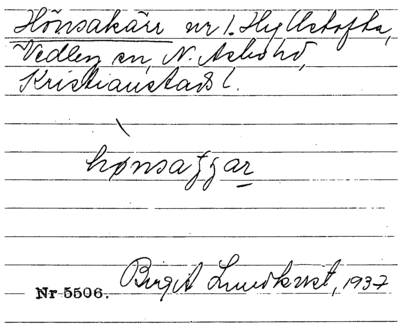 Hönsakärr nr 1. Hyllstofta,
Vedby sn, N. Åsbo hd,
Kristianstads l.
hønsaɟɟar
Birgit Lundkvist, 1937
Nr 5506.